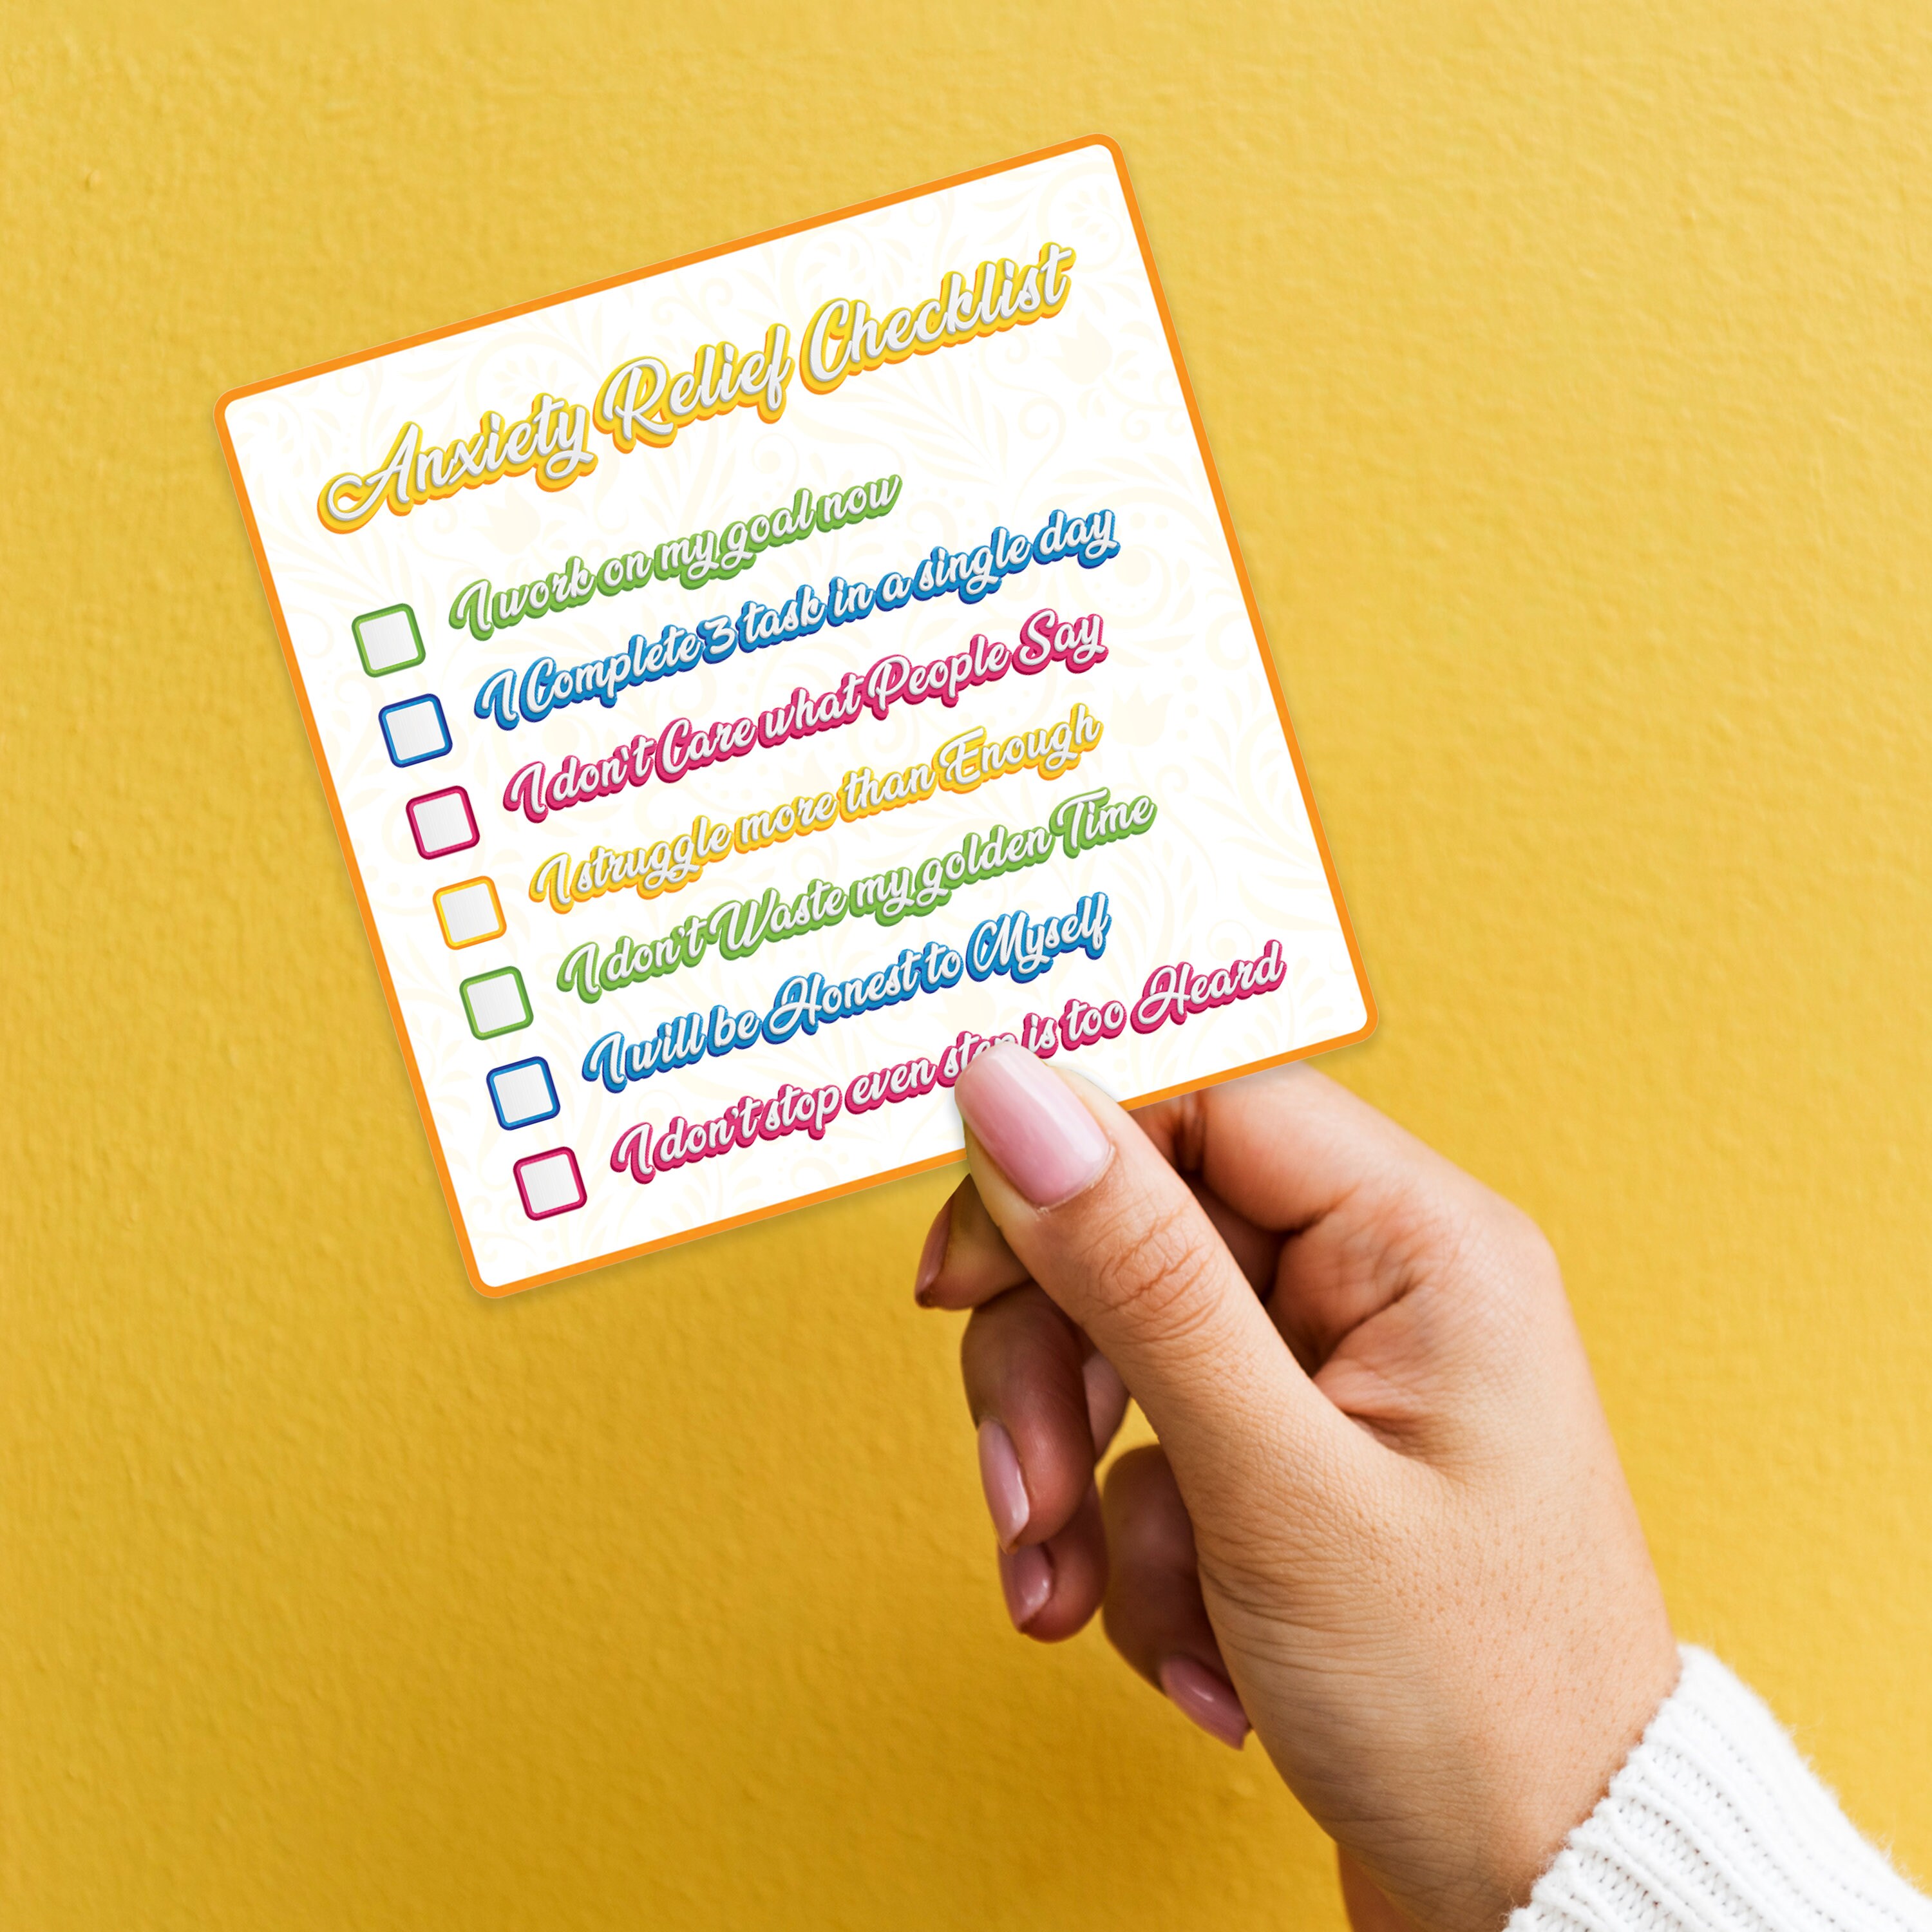 Anxiety Relief Checklist
I work on my goal now
I Complete 3 task in a single day
I don't Care what People Say
I struggle more than Enough
I don't Waste my golden Time
I will be Honest to Myself
I don't stop even step is too Heard